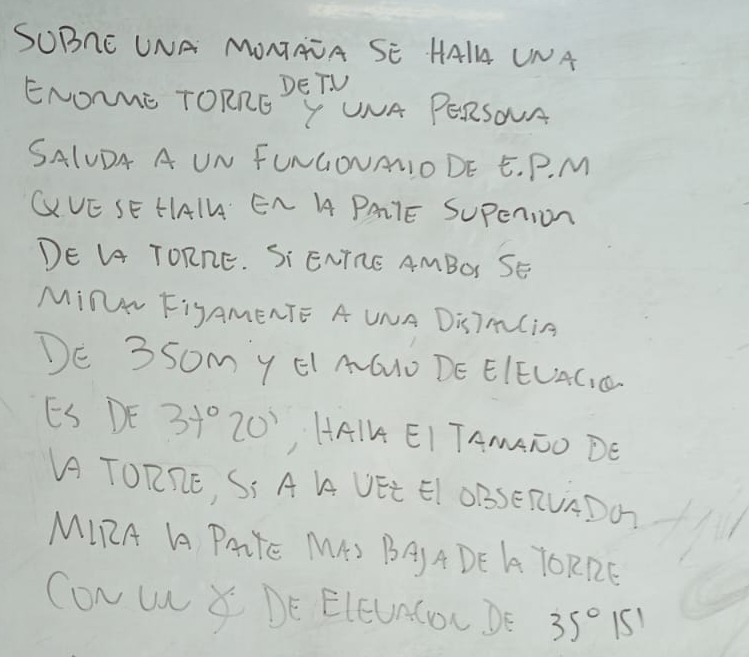 SOBRE UNA MONTAÑA SE HAllA UNA
ENORME TORRE DE TV Y UNA PERSONA
SALUDA A UN FUNCIONARIO DE E.P.M
QUE SE HAllA EN lA PARTE SUPERIOR
DE LA TORRE. Si ENTRE AMBOS SE
MiRAN FiJAMENTE A UNA DiSTANCiA
DE 350m y El ANGULO DE ElEVACION
ES DE 37° 20', HAllA El TAMAÑO DE
LA TORRE, Si A lA VEZ El OBSERVADOR
MIRA lA PARTE MAS BAJA DE lA TORRE
CON UN ∡ DE ELEVACION DE 35° 15'